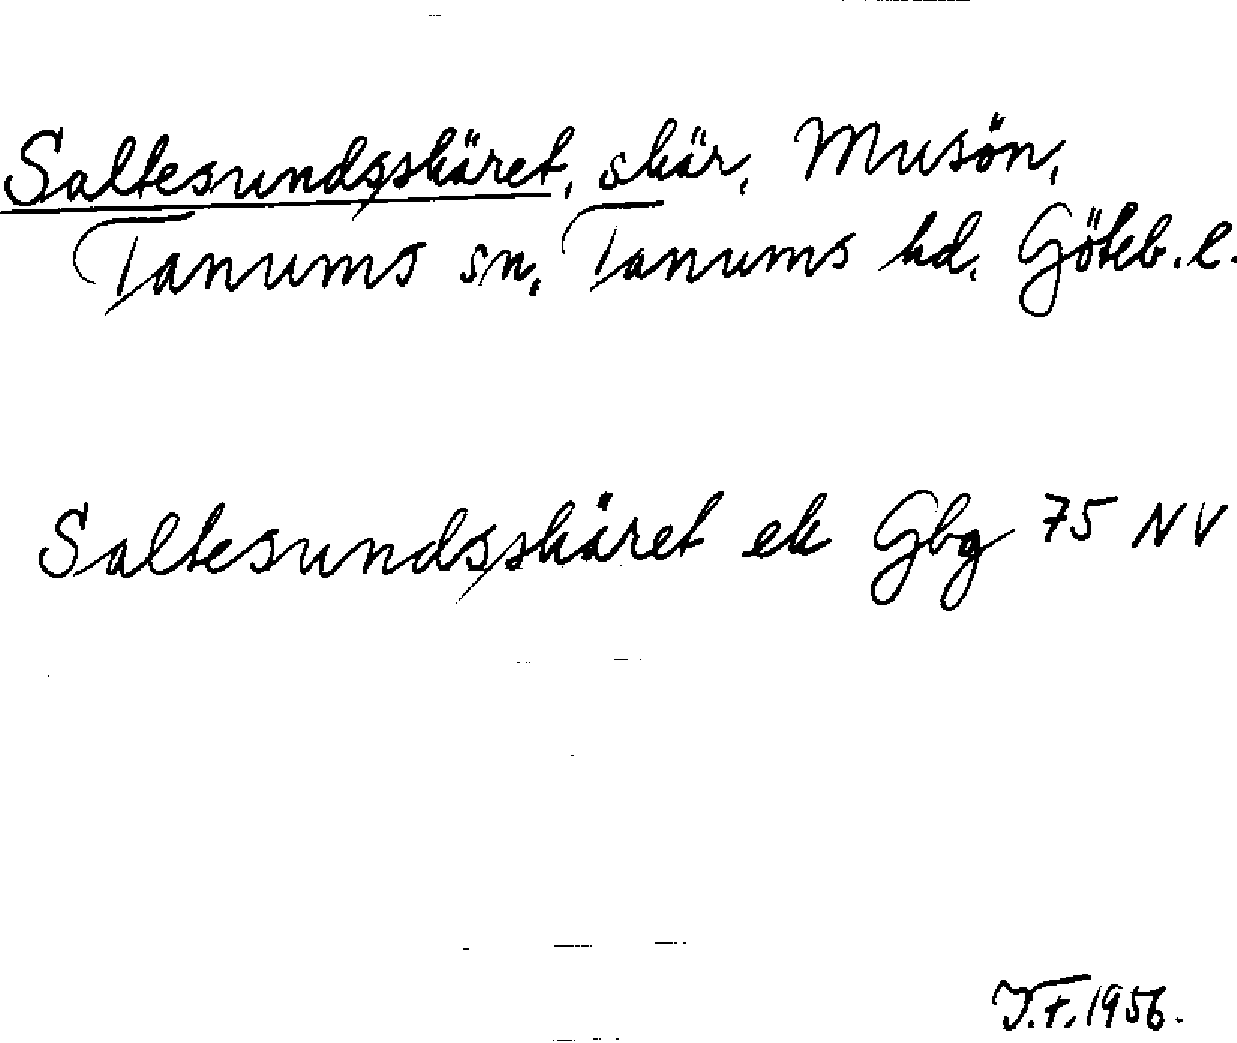 Saltesundsskäret, skär, Musön,
Tanums sn, Tanums hd, Göteb. l.
Saltesundsskäret ek Gbg 75 NV
J.F. 1956.